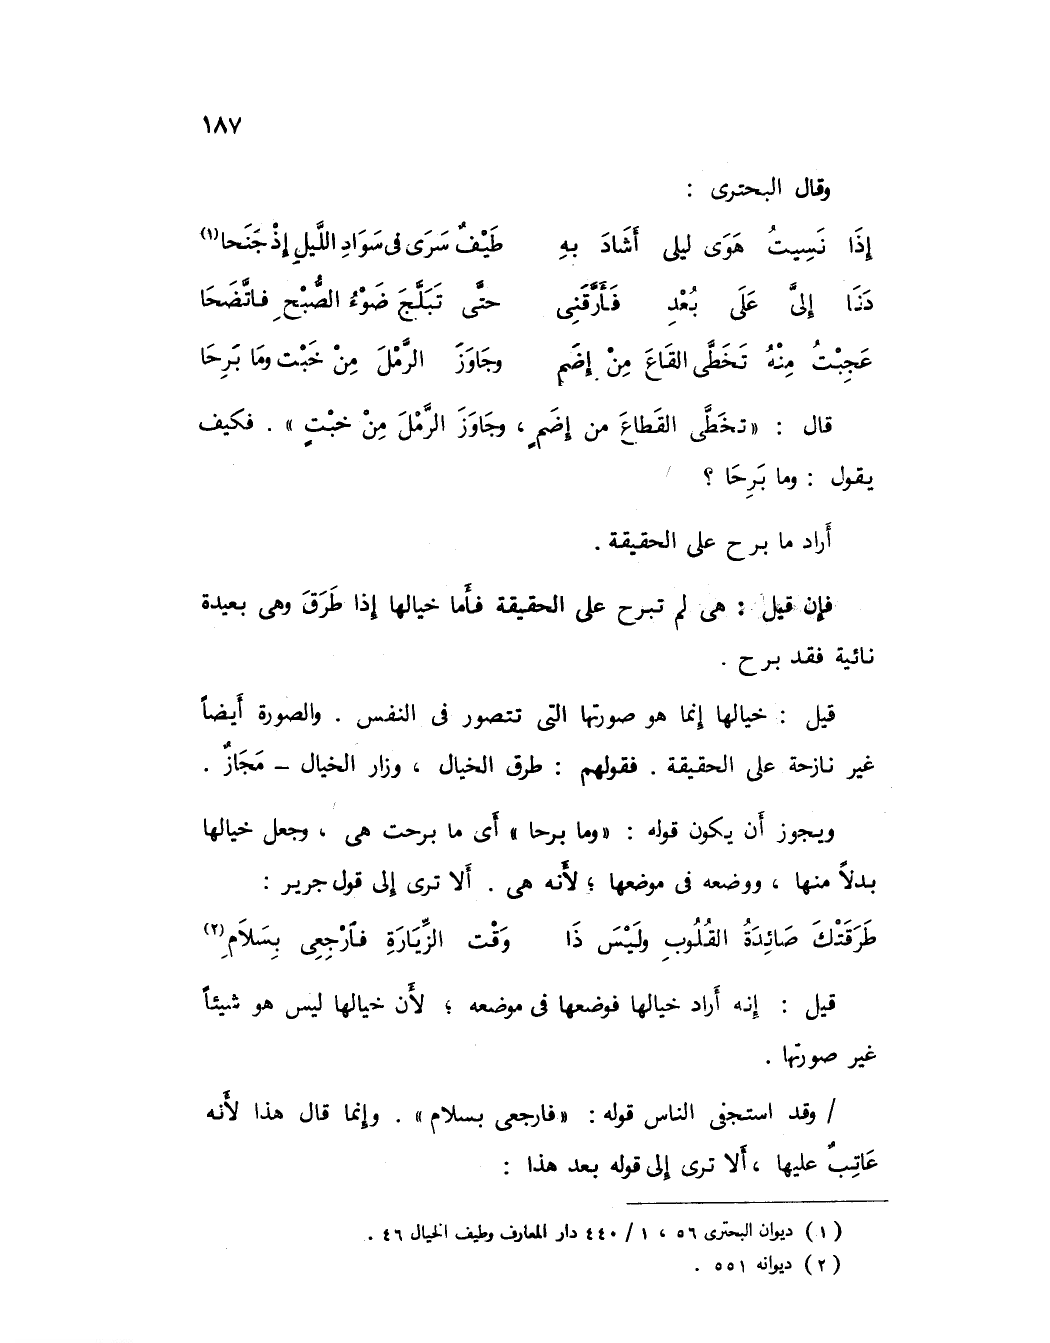 ١٨٧
وقال البحترى :
إِذَا نَسِيتُ هَوَى ليلى أَشَادَ بهِ طَيْفٌ سَرَى فى سَوَادِ اللَّيلِ إِذْ جَنَحا(١)
دَنَا إِلىَّ عَلَى بُعْدٍ فَأَرَّقَنِى حتَّى تَبَلَّجَ ضَوْءُ الصُّبْحِ فاتَّضَحَا
عَجِبْتُ مِنْهُ تَخَطَّى القَاعَ مِنْ إِضَمٍ وجَاوَزَ الرَّمْلَ مِنْ خَبْتٍ ومَا بَرِحَا
قال : «تخَطَّى القَطاعَ من إِضَمٍ ، وجَاوَزَ الرَّمْلَ مِنْ خبْتٍ » . فكيف
يقول : وما بَرِحَا ؟
أَراد ما برح على الحقيقة .
فإن قيل : هى لم تبرح على الحقيقة فأَما خيالها إِذا طَرَقَ وهى بعيدة
نائية فقد برح .
قيل : خيالها إِنما هو صورتها التى تتصور فى النفس . والصورة أَيضاً
غير نازحة على الحقيقة . فقولهم : طرق الخيال ، وزار الخيال – مَجَازٌ .
ويجوز أَن يكون قوله : «وما برحا » أَى ما برحت هى ، وجعل خيالها
بدلاً منها ، ووضعه فى موضعها ؛ لأَنه هى . أَلا ترى إِلى قول جرير :
طَرَقَتْكَ صَائِدَةُ القُلُوبِ ولَيْسَ ذَا وَقْت الزِّيَارَةِ فَارْجِعِى بِسَلاَمِ(٢)
قيل : إِنه أَراد خيالها فوضعها فى موضعه ؛ لأَن خيالها ليس هو شيئاً
غير صورتها .
/ وقد استجفى الناس قوله : «فارجعى بسلام » . وإنما قال هذا لأَنه
عَاتِبٌ عليها ، أَلا ترى إِلى قوله بعد هذا :
(١) ديوان البحترى ٥٦ ، ١ / ٤٤٠ دار المعارف وطيف الخيال ٤٦ .
(٢) ديوانه ٥٥١ .